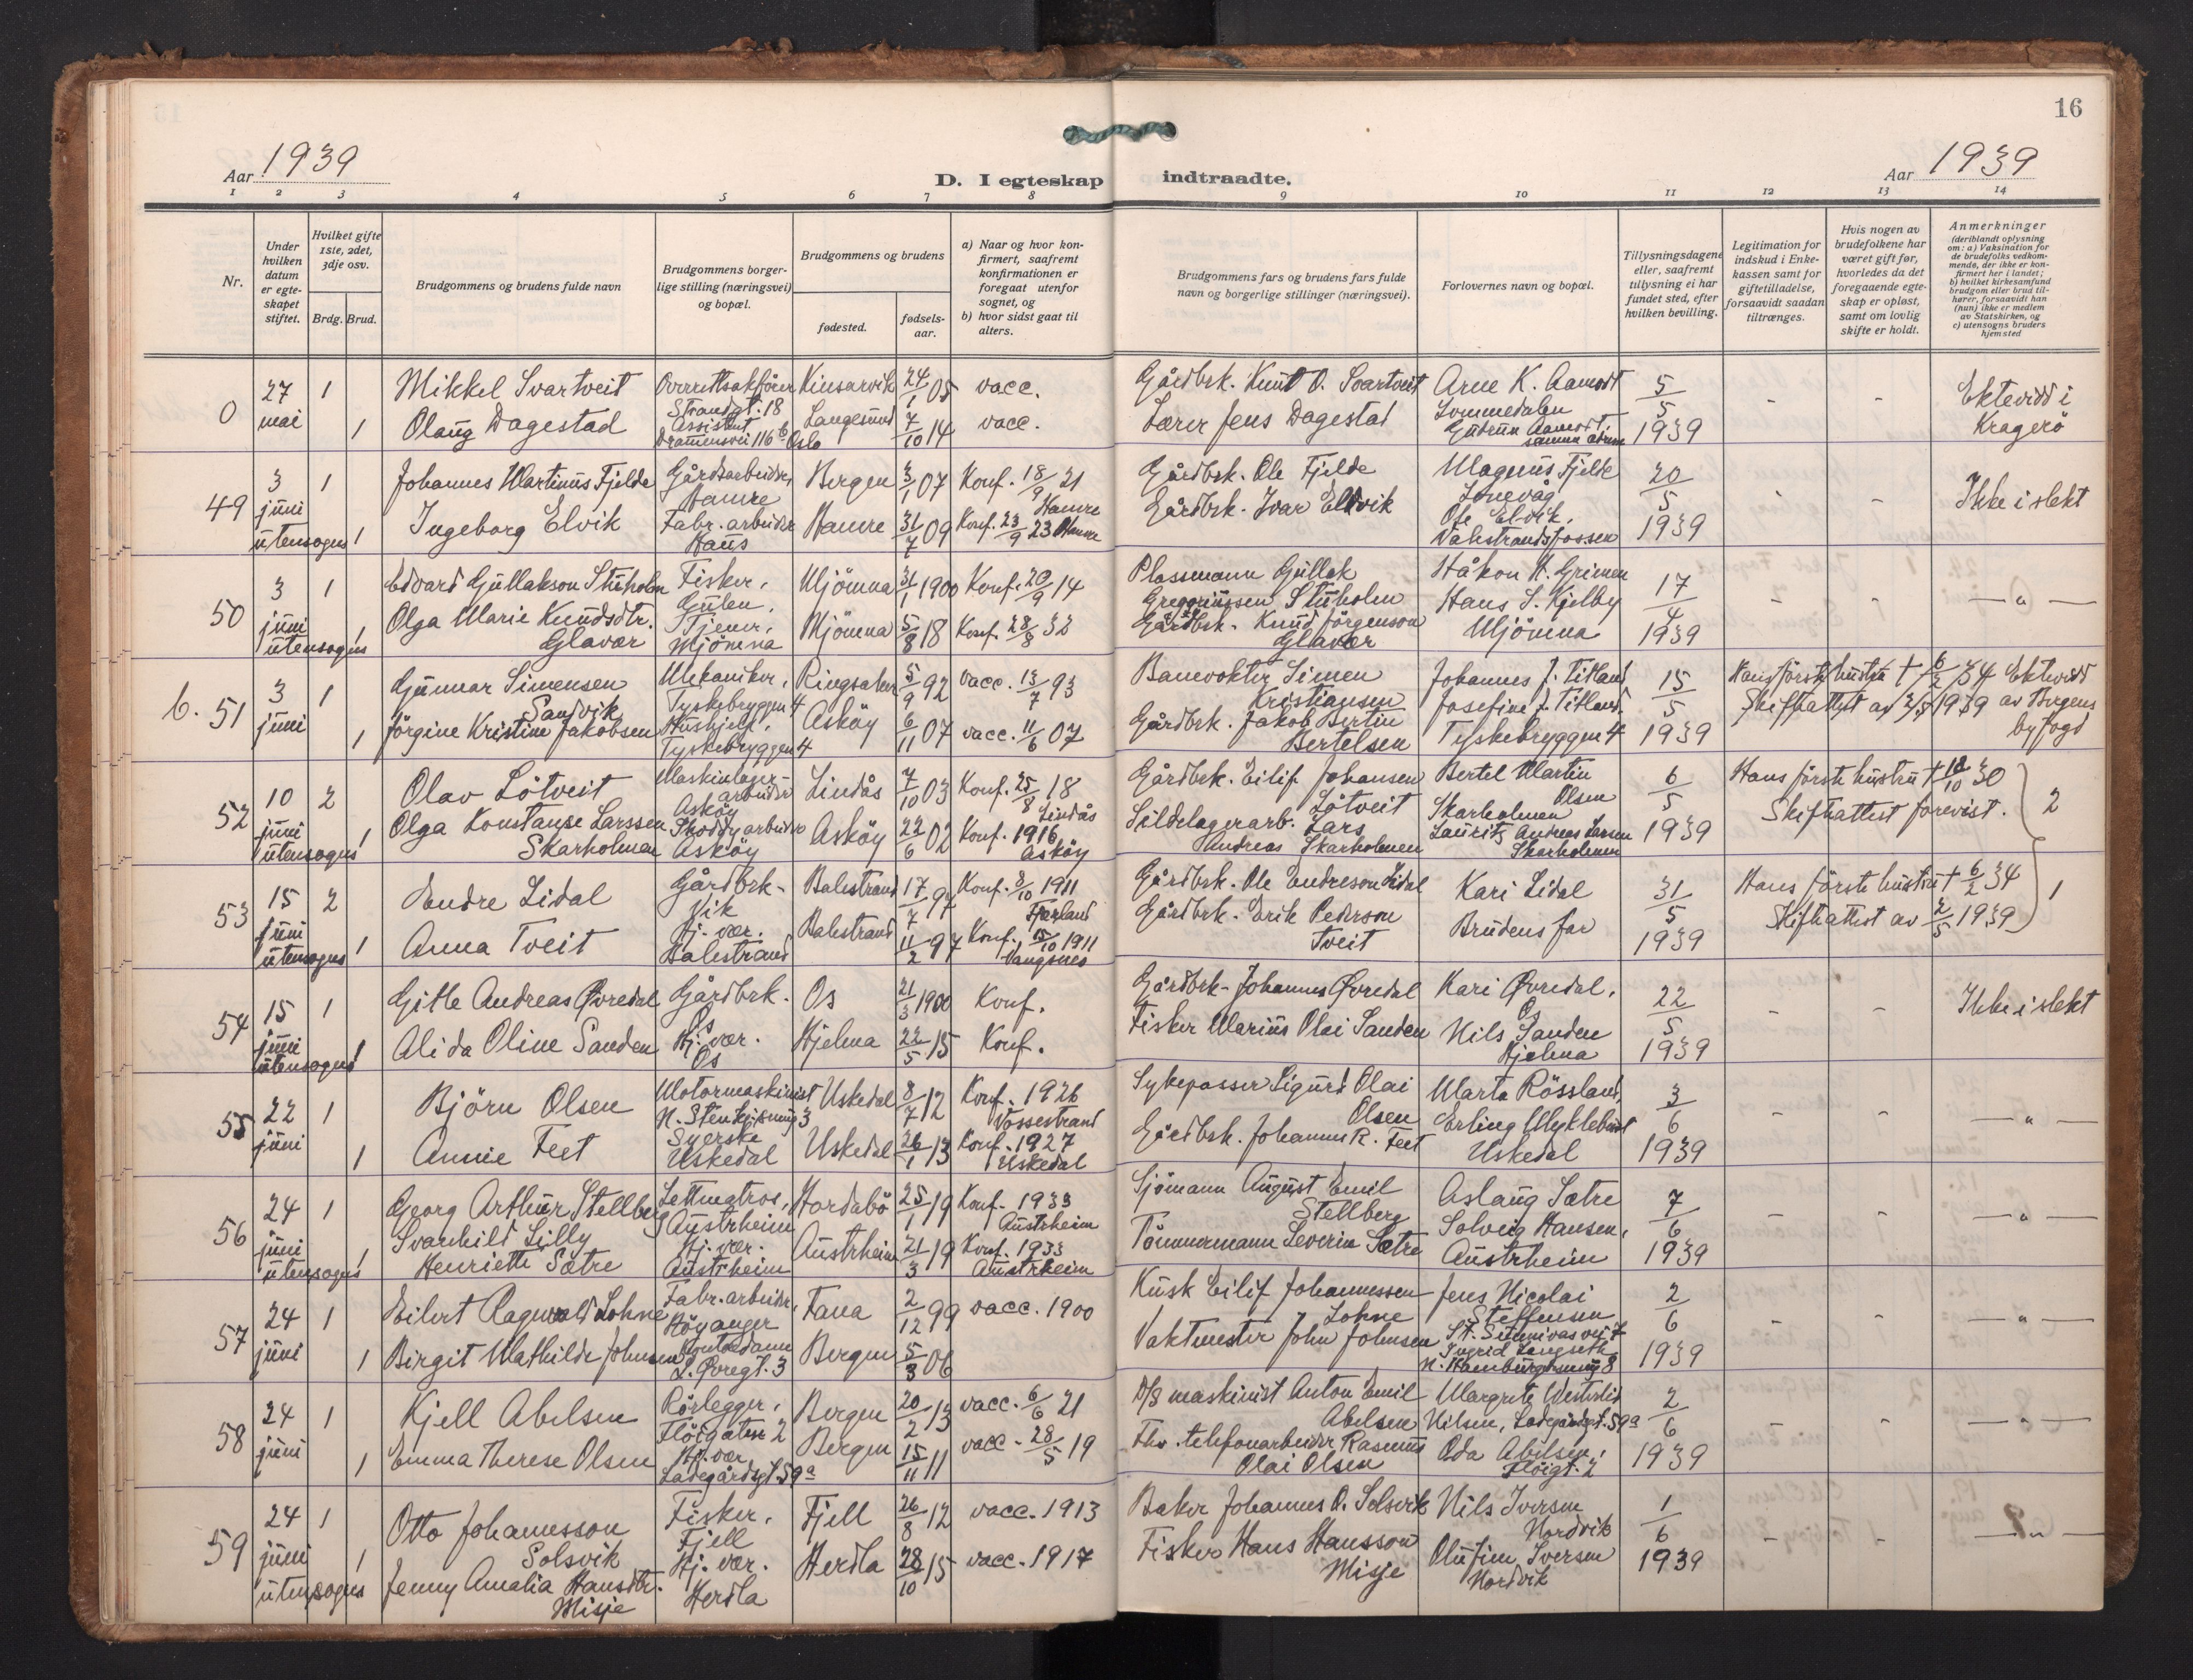 16
Aar 1939
D. I egteskap indtraadte.
Aar 1939
1 2 3 4 5 6 7 8 9 10 11 12 13 14
Nr.
Under hvilken datum er egteskapet stiftet.
Hvilket gifte 1ste, 2det, 3dje osv.
Brdg. Brud.
Brudgommens og brudens fulde navn
Brudgommens borgerlige stilling (næringsvei) og bopæl.
Brudgommens og brudens
fødested.
fødselsaar.
a) Naar og hvor konfirmert, saafremt konfirmationen er foregaat utenfor sognet, og
b) hvor sidst gaat til alters.
Brudgommens fars og brudens fars fulde navn og borgerlige stillinger (næringsvei).
Forlovernes navn og bopæl.
Tillysningsdagene eller, saafremt tillysning ei har fundet sted, efter hvilken bevilling.
Legitimation for indskud i Enkekassen samt for giftetilladelse, forsaavidt saadan tiltrænges.
Hvis nogen av brudefolkene har været gift før, hvorledes da det foregaaende egteskap er opløst, samt om lovlig skifte er holdt.
Anmerkninger
(deriblandt oplysning om: a) Vaksination for de brudefolks vedkommende, der ikke er konfirmert her i landet;
b) hvilket kirkesamfund brudgom eller brud tilhører, forsaavidt han (hun) ikke er medlem av Statskirken, og
c) utensogns bruders hjemsted
0 27 mai 1 Mikkel Svartveit Overrettsakfører Strandgt. 18 Kinsarvik 24/1 05 vacc. Gårdbrk. Knut O. Svartveit Arne K. Aamodt Lommedalen 5/5 1939 - - Ektevidd i Kragerö
1 Olaug Dagestad Assistent Drammensvei 116 b Oslo Langesund 7/10 14 vacc. Lærer Jens Dagestad Gudrun Aamodt, samme adresse
49 3 juni utensogns 1 Johannes Martinus Fjelde Gårdsarbeider, Hamre Bergen 3/1 07 Konf. 18/9 21 Hamre Gårdbrk. Ole Fjelde Magnus Fjelde Lonevåg 20/5 1939 - - Ikke i slekt
1 Ingeborg Elvik Fabr. arbeider Haus Hamre 31/7 09 Konf. 23/9 23 Hamre Gårdbrk. Ivar Elvik Ole Elvik, Valestrandsfossen
50 3 juni utensogns 1 Edvard Gullakson Stuholm Fisker, Gulen, Mjömna 31/1 1900 Konf. 20/9 14 Plassmann Gullak Greggriussen Stuholm Håkon K. Grimen 17/4 1939 - - — " —
1 Olga Marie Knudsdtr. Glavær Tjener, Mjömna Mjömna 5/8 18 Konf. 28/8 32 Gårdbrk. Knud Jörgenson Glavær Hans S. Kjelby Mjömna
b. 51 3 juni 1 Gunnar Simensen Sandvik Mekaniker, Tyskebryggen 4 Ringsaker 5/9 92 vacc. 13/7 93 Banevokter Simen Kristiansen Johannes J. Titland 15/5 1939 Hans förste hustru † 6/2 34 Skifteattest av 3/5 1939 Ektevidd av Bergens byfogd
1 Jörgine Kristine Jakobsen Hushjelp, Tyskebryggen 4 Asköy 6/11 07 vacc. 11/6 07 Gårdbrk. Jakob Bertin Bertelsen Josefine J. Titland. Tyskebryggen 4
52 10 juni utensogns 2 Olav Lötveit Maskinlagerarbeider Asköy Lindås 7/10 03 Konf. 25/8 18 Lindås Gårdbrk. Eilif Johansen Lötveit Bertel Martin Olsen Skarholmen 6/5 1939 Hans förste hustru † 18/10 30 Skifteattest forevist. 2
1 Olga Konstanse Larssen Skarholmen Shoddyarbeider Asköy Asköy 22/6 02 Konf. 1916 Asköy Sildelagerarb. Lars Andreas Skarholmen Lauritz Andreas Larsen Skarholmen
53 15 juni utensogns 2 Endre Lidal Gårdbrk. Vik Balestrand 17/7 97 Konf. 8/10 1911 Fjærland Gårdbrk. Ole Endreson Lidal Kari Lidal 31/5 1939 Hans förste hustru † 6/2 34 Skifteattest av 2/5 1939 1
1 Anna Tveit Hj. vær. Balestrand Balestrand 11/2 97 Konf. 15/10 1911 Vangsnes Gårdbrk. Erik Pederson Tveit Brudens far
54 15 juni utensogns 1 Gitle Andreas Øvredal Gårdbrk. Os Os 21/3 1900 Konf. Gårdbrk. Johannes Øvredal Kari Øvredal, Os 22/5 1939 - - Ikke i slekt
1 Alida Oline Sanden Hj. vær. Os Hjelma 22/5 15 Konf. Fisker Marius Olai Sanden Nils Sanden Hjelma
55 22 juni 1 Björn Olsen Motormaskinist N. Stenkjersmug 3 Uskedal 8/7 12 Konf. 1926 Vossestrand Sykepasser Sigurd Olai Olsen Marta Rössland, 3/6 1939 - - — " —
1 Annie Feet Syerske Uskedal Uskedal 26/1 13 Konf. 1927 Uskedal Gårdbrk. Johannes R. Feet Erling Myklebust Uskedal
56 24 juni utensogns 1 Georg Arthur Stellberg Lettmatros, Austrheim Hordabö 25/1 19 Konf. 1933 Austrheim Sjömann August Emil Stellberg Aslaug Sætre 7/6 1939 - - — " —
1 Svanhild Lilly Henriette Sætre Hj. vær. Austrheim Austrheim 21/3 19 Konf. 1933 Austrheim Tömmermann Severin Sætre Solveig Hansen, Austrheim
57 24 juni 1 Eilert Ragnvald Lohne Fabr. arbeider, Höyanger Fana 2/12 99 vacc. 1900 Kusk Eilif Johannessen Lohne Jens Nicolai Steffensen 2/6 1939 - - — " —
1 Birgit Mathilde Johnsen Kontordame L. Øvregt. 3 Bergen 5/3 06 Vaktmester John Johnsen Ingrid Langseth N. Hamburgersmug 8
58 24 juni 1 Kjell Abelsen Rörlegger, Flöigaten 2 Bergen 20/2 13 vacc. 6/6 21 D/S maskinist Anton Emil Abelsen Margrete Westerlid Nilsen, Ladegårdsgt. 59 a 2/6 1939 - - — " —
1 Emma Therese Olsen Hj. vær. Ladegårdsgt. 59 a Bergen 15/11 11 vacc. 28/5 19 Fhv. telefonarbeider Rasmus Olai Olsen Oda Abelsen, Flöigt. 2
59 24 juni utensogns 1 Otto Johannesson Solsvik Fisker, Fjell Fjell 26/8 12 vacc. 1913 Baker Johannes O. Solsvik Nils Iversen Nordvik 1/6 1939 - - — " —
1 Jenny Amalia Hansdtr. Misje Hj. vær. Herdla Herdla 28/10 15 vacc. 1917 Fisker Hans Hansson Misje Olufine Iversen Nordvik